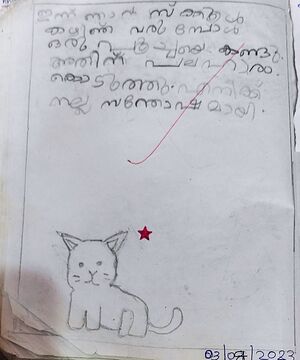 ഇന്ന് ഞാൻ സ്ക്കൂൾ
കഴിഞ്ഞ് വരുമ്പോൾ
ഒരു പൂച്ചയെ കണ്ടു.
അതിന് പലഹാരം
കൊടുത്തു. എനിക്ക്
നല്ല സന്തോഷമായി.
03/07/2023